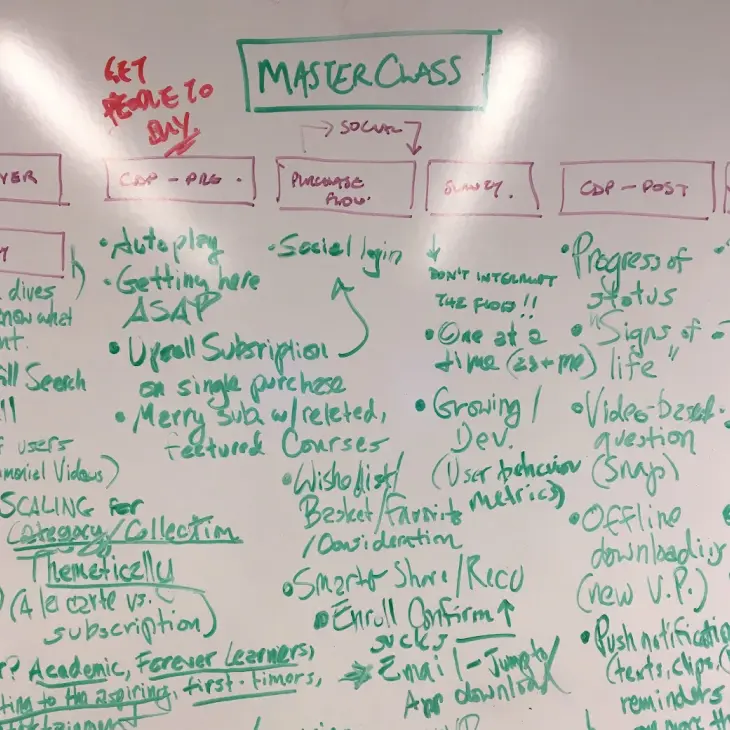 MASTERCLASS
GET
PEOPLE TO
BUY.
SOCIAL
VER
CDP - PRE
PURCHASE
FLOW.
SURVEY.
CDP - POST
dives
now what
nt.
ill Search
ll
f users
monial Videos)
SCALING FOR
Category/Collection
Thematically
(A la carte vs.
subscription)
r? Academic, Forever Learners,
ting to the aspiring, first-timers,
• Autoplay
• Getting here
ASAP
• Upsell Subscription
on single purchase
• Merry sub w/related,
Featured Courses
• Social login
• Wishlist/
Basket/Favorite
/Consideration
• Smarter Share/Reco
• Enroll Confirm ↑
sucks
Email - Jump to
App download
DON'T INTERRUPT
THE FLOW!!
• One at a
time (as + me)
• Growing/
Dev.
(User behavior
metrics)
• Progress of
status
• "Signs of
life"
• Video-based
question
(Snap)
• Offline
downloading
(new V.P.)
• Push notification
(texts, clips,
reminders